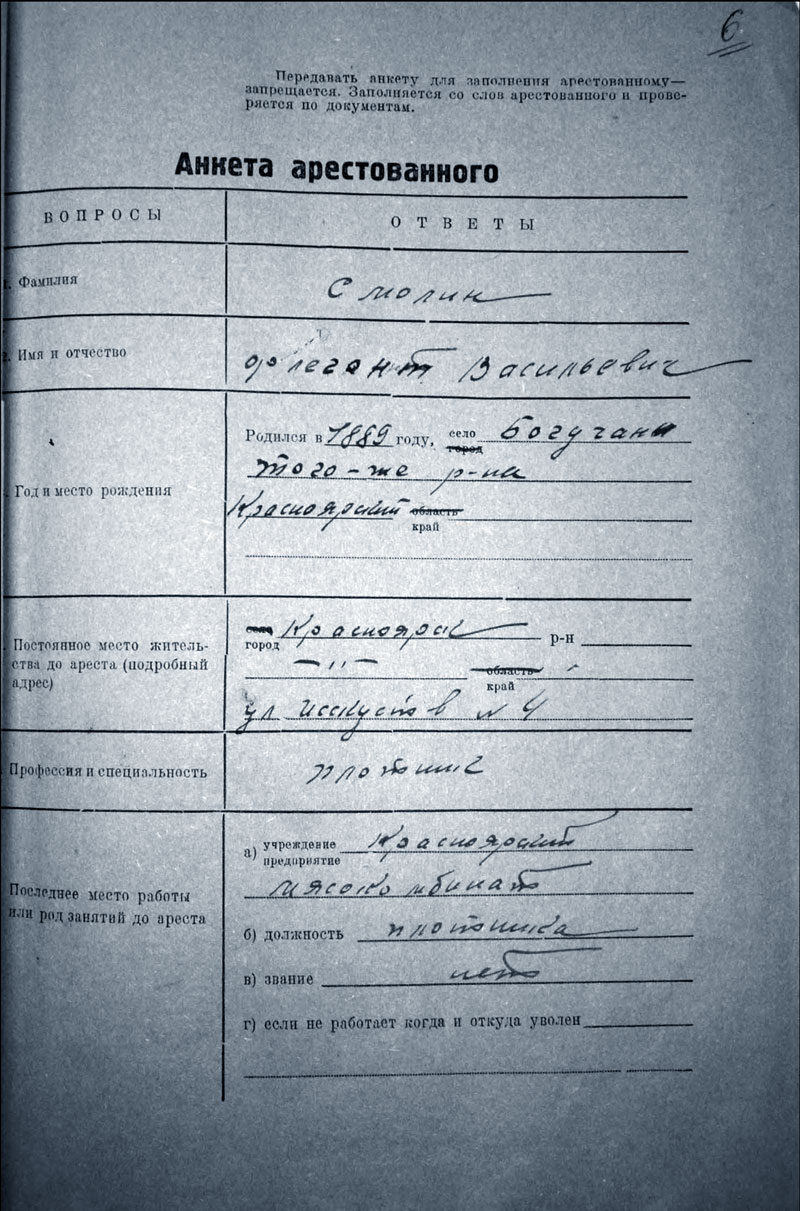 6
Передавать анкету для заполнения арестованному—
запрещается. Заполняется со слов арестованного и прове-
ряется по документам.
Анкета арестованного
ВОПРОСЫ ОТВЕТЫ
1. Фамилия Смолин
2. Имя и отчество Флегант Васильевич
Год и место рождения
Родился в 1889 году, село город Богучаны
того-же р-на
Красноярский область край
Постоянное место житель-
ства до ареста (подробный
адрес)
село город Красноярск р-н
— " — область край
ул Исскуств № 4
Профессия и специальность плотник
Последнее место работы
или род занятий до ареста
а) учреждение предприятие Красноярский
мясокомбинат
б) должность плотника
в) звание нет
г) если не работает когда и откуда уволен